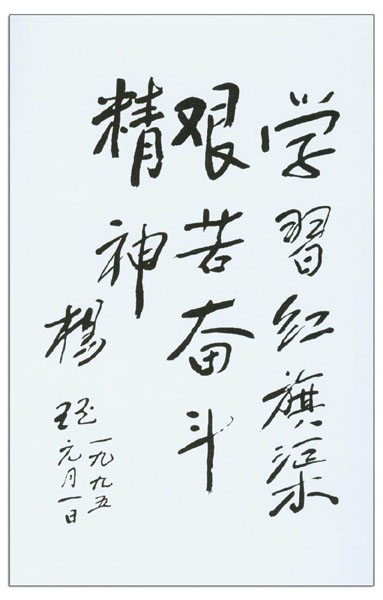 学習红旗渠
艰苦奋斗
精神
楊珏
一九九五
元月一日